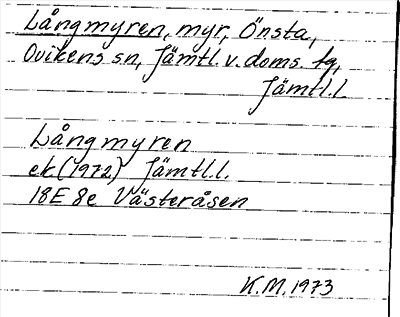 Långmyren, myr, Önsta,
Ovikens sn, Jämtl. v. doms. tg,
Jämtl.l.
Långmyren
ek (1972) Jämtl.l.
18E 8e Västeråsen
K.M. 1973